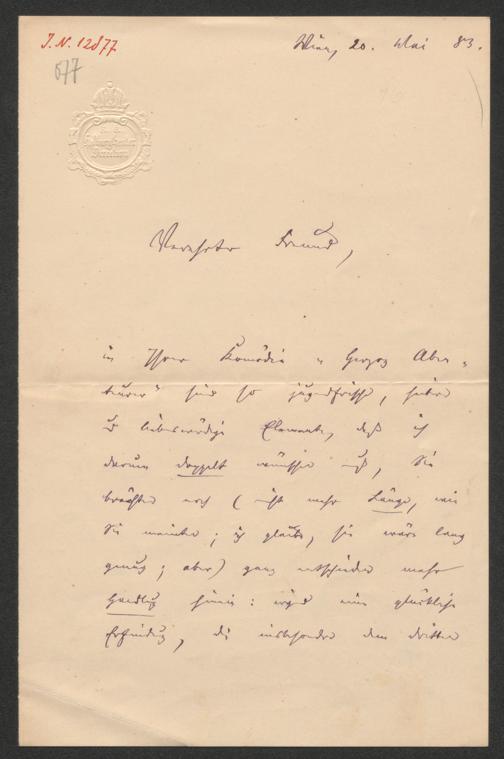 J. N. 12877
677
Wien, 20. Mai 83.
Verehrter Freund,
in Ihrer Komödie „Herzog Aben-
teurer" sind so jugendfrische, feine
und liebenswürdige Elemente, daß ich
darum doppelt wünschen muß, Sie
brächten noch (nicht mehr Länge, wie
Sie meinten; ich glaube, sie wäre lang
genug; aber) ganz entschieden mehr
Handlung hinein: irgend eine glückliche
Erfindung, die insbesondre dem dritten